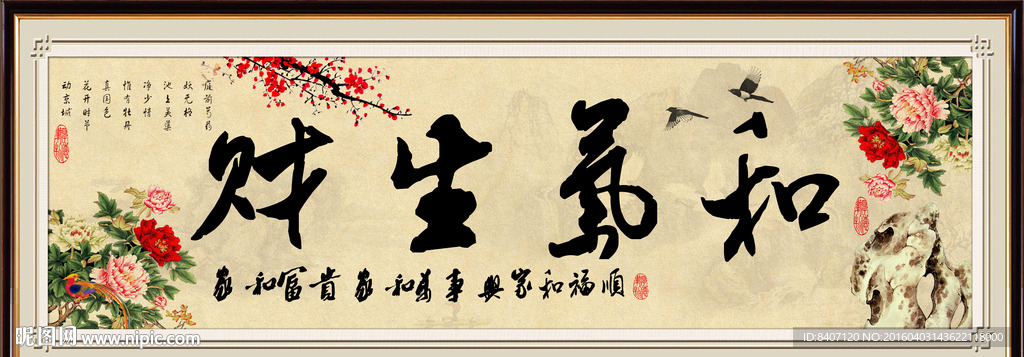 庭前芍药
妖无格
池上芙蕖
净少情
惟有牡丹
真国色
花开时节
动京城
和氣生财
家和富贵 家和萬事興 家和福順
昵图网 www.nipic.com
ID:8407120 NO:20160403143622118000